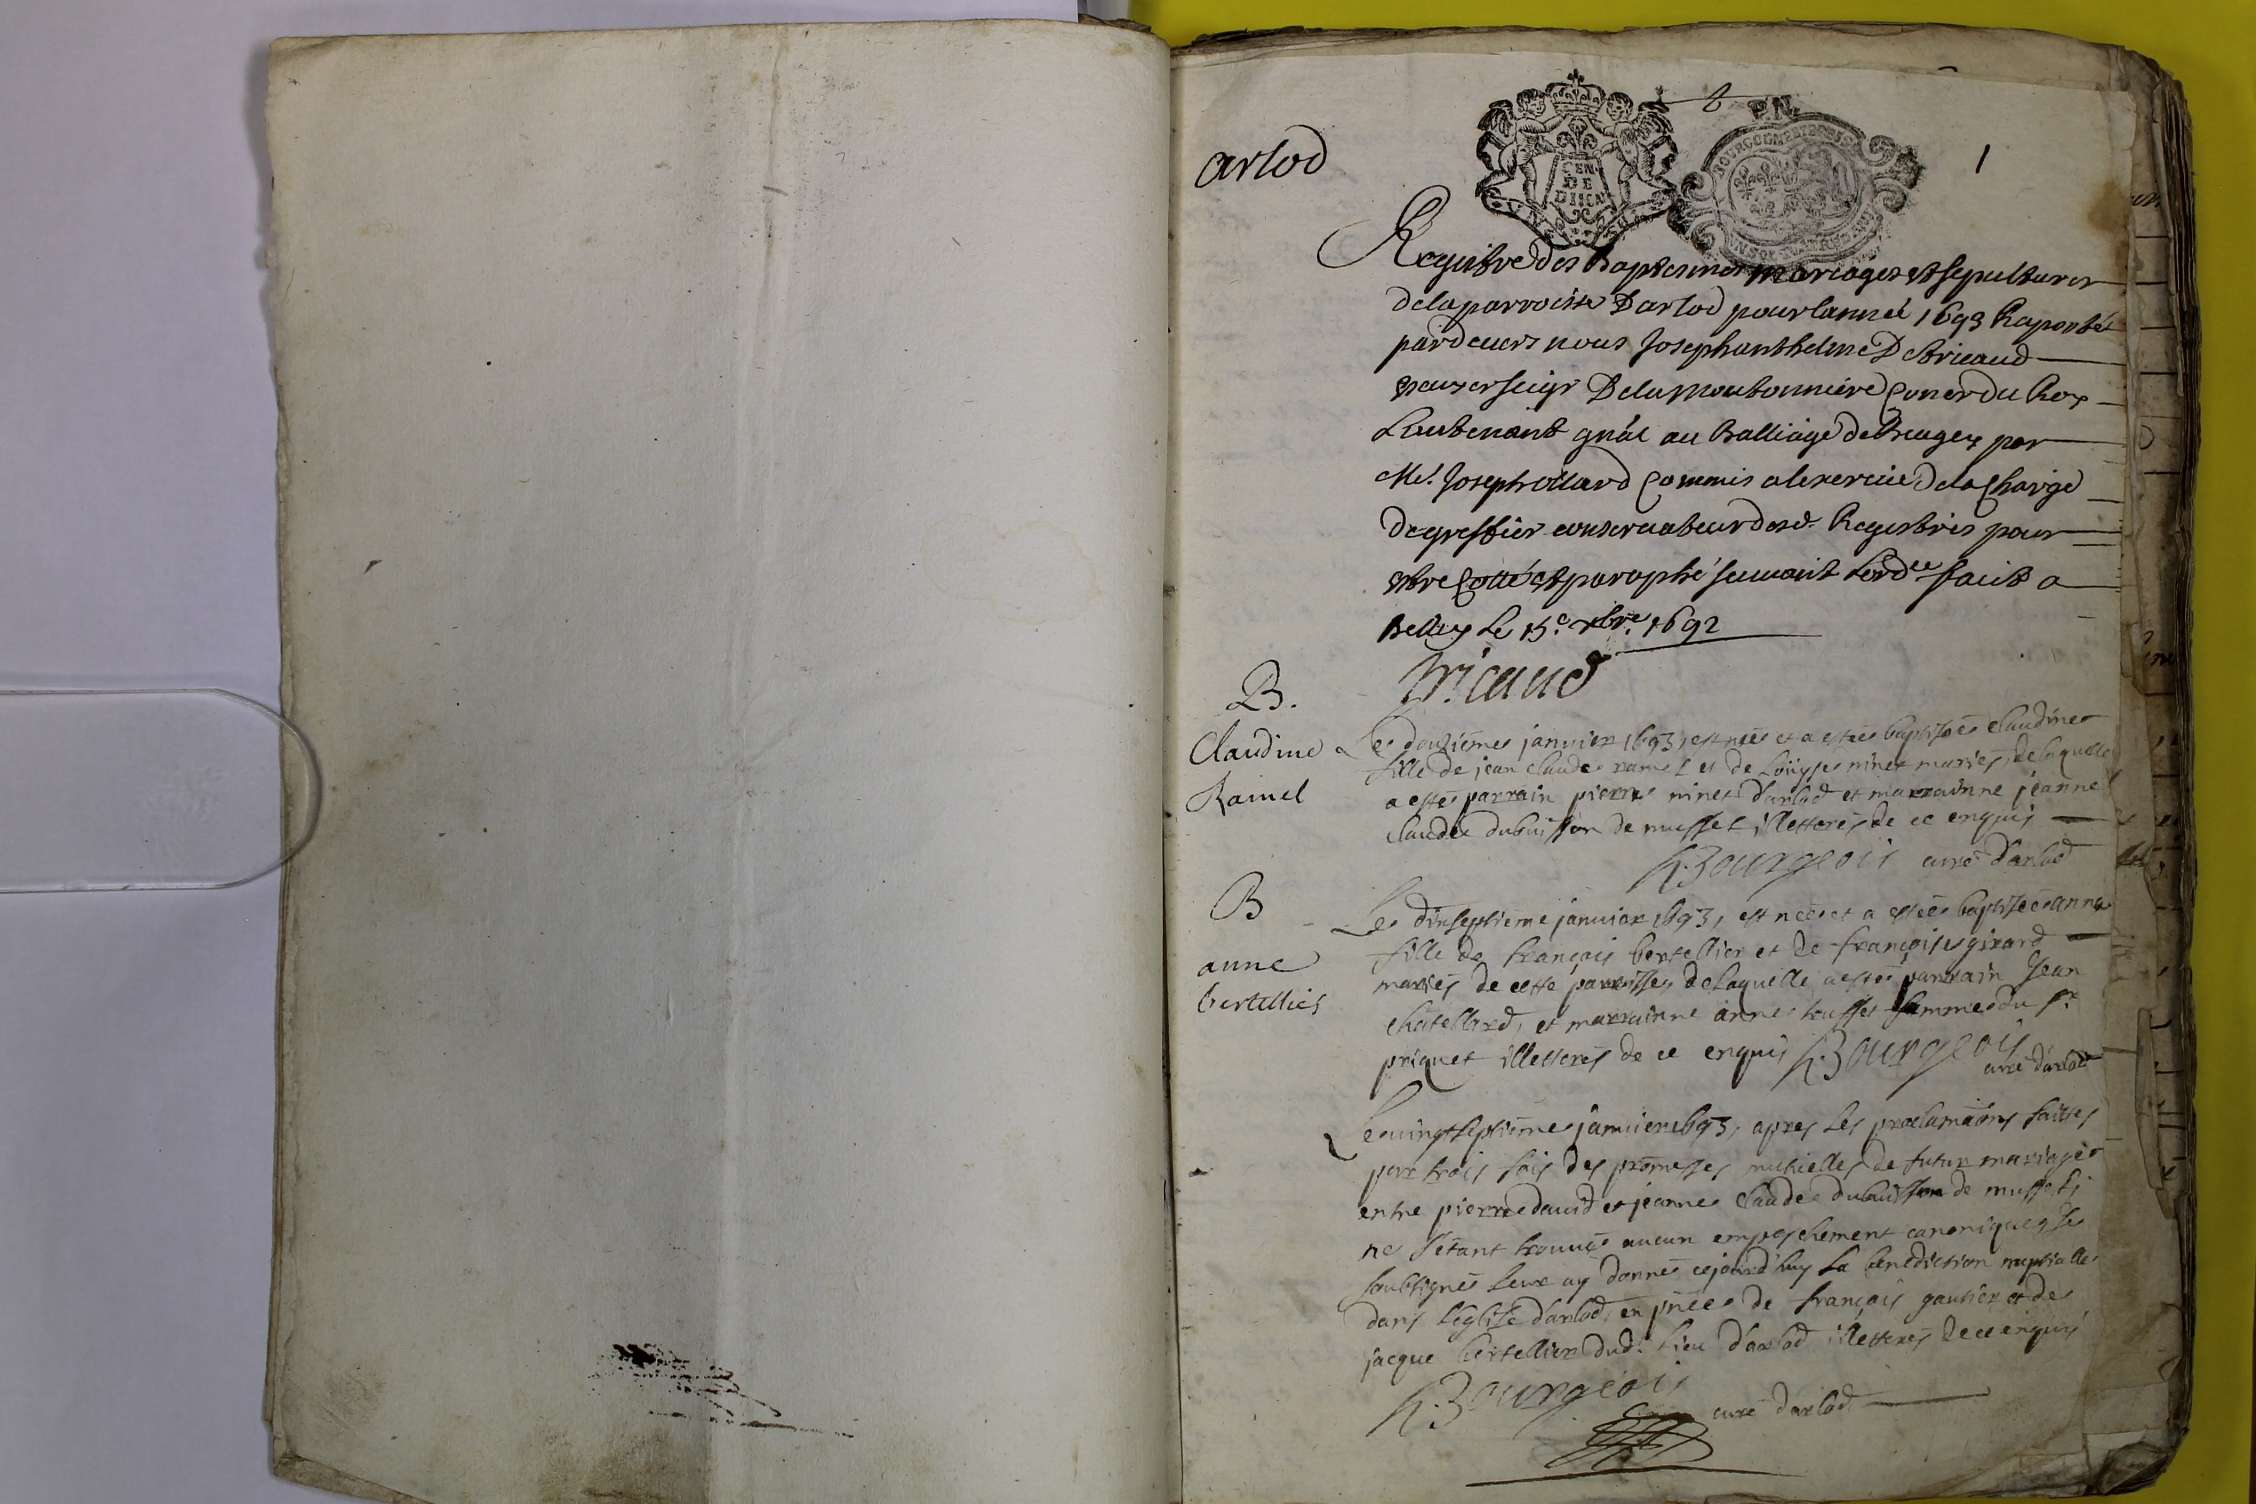 arlod
1
GEN
DE
DIION
Registre des Baptesmes mariages et sepultures
de la parroisse Darlod pour lanneé 1693 Raportéz
pardevers nous Joseph anthelme De bricaud
seigr De la Moutonniere Coner du Roy
Lieutenant gnâl au Balliage de Beugey par
Me. Joseph ollard Commis a lexercice de la Charge
de greffier conservateur desd. Registres pour
estre Cotté et paraphé suivant Lordce fait a
Belley Le 15.e xbre. 1692
Bricaud
B.
Claudine
Ramel
Le douziéme janvier 1693, est neé et a esteé baptiseé Claudine
fille de jean Claude ramel et de Loüyse ninet mariés, de laquelle
a esté parrain pierre ninet d'arlod et marrainne jeanne
Claudée dubuisson de mussel illetterés de ce enquis
Bourgeois curé d'arlod
B
anne
bertellier
Le dixseptiéme janvier 1693, est neé et a esteé baptiseé anne
fille de françois bertellier et de françoise girard
mariés de cette parroisse de laquelle a esté parrain Jean
Chatellard, et marrainne anne femme du sr
priquet illetterés de ce enquis Bourgeois
curé d'arlod
Le vingtseptiéme janvier 1693, apres les proclamaôns faittes
par trois fois des promesses mutuelles de futur mariage
entre pierre david et jeanne Claudée dubuisson de mussel
ne s'étant trouvé aucun empeschement canonique je
soubsigné leur ay donné cejourd'huy la benediction nuptialle
dans l'église d'arlod, en pñce de françois gautier et de
jacque bertellier dud. lieu d'arlod illetterés de ce enquis
Bourgeois
curé d'arlod